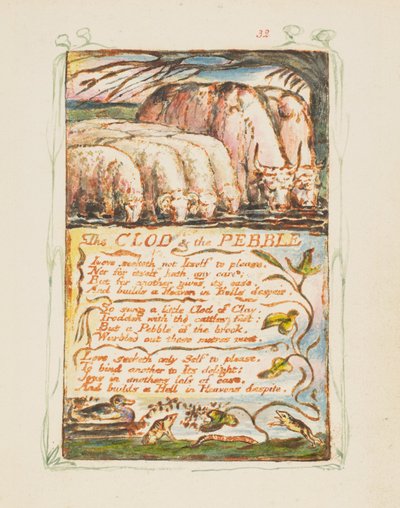 32
The CLOD & the PEBBLE
Love seeketh not Itself to please,
Nor for itself hath any care;
But for another gives its ease,
And builds a Heaven in Hells despair.
So sung a little Clod of Clay,
Trodden with the cattles feet:
But a Pebble of the brook,
Warbled out these metres meet.
Love seeketh only Self to please,
To bind another to Its delight:
Joys in anothers loss of ease,
And builds a Hell in Heavens despite.